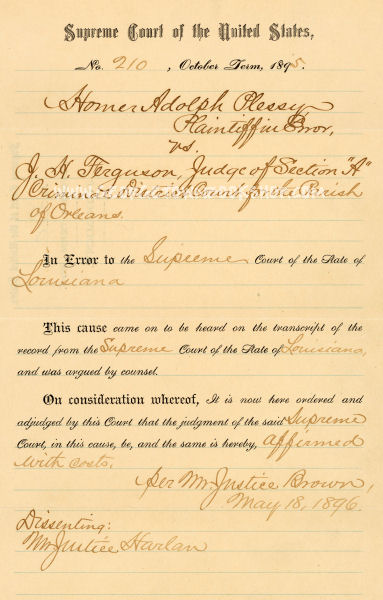 Supreme Court of the United States,
No. 210, October Term, 1895.
Homer Adolph Plessy
Plaintiff in Error,
vs.
J. H. Ferguson, Judge of Section "A"
Criminal District Court for the Parish
of Orleans.
In Error to the Supreme Court of the State of
Louisiana
This cause came on to be heard on the transcript of the
record from the Supreme Court of the State of Louisiana,
and was argued by counsel.
On consideration whereof, It is now here ordered and
adjudged by this Court that the judgment of the said Supreme
Court, in this cause, be, and the same is hereby, affirmed
with costs.
per Mr. Justice Brown,
May 18, 1896.
Dissenting:
Mr. Justice Harlan